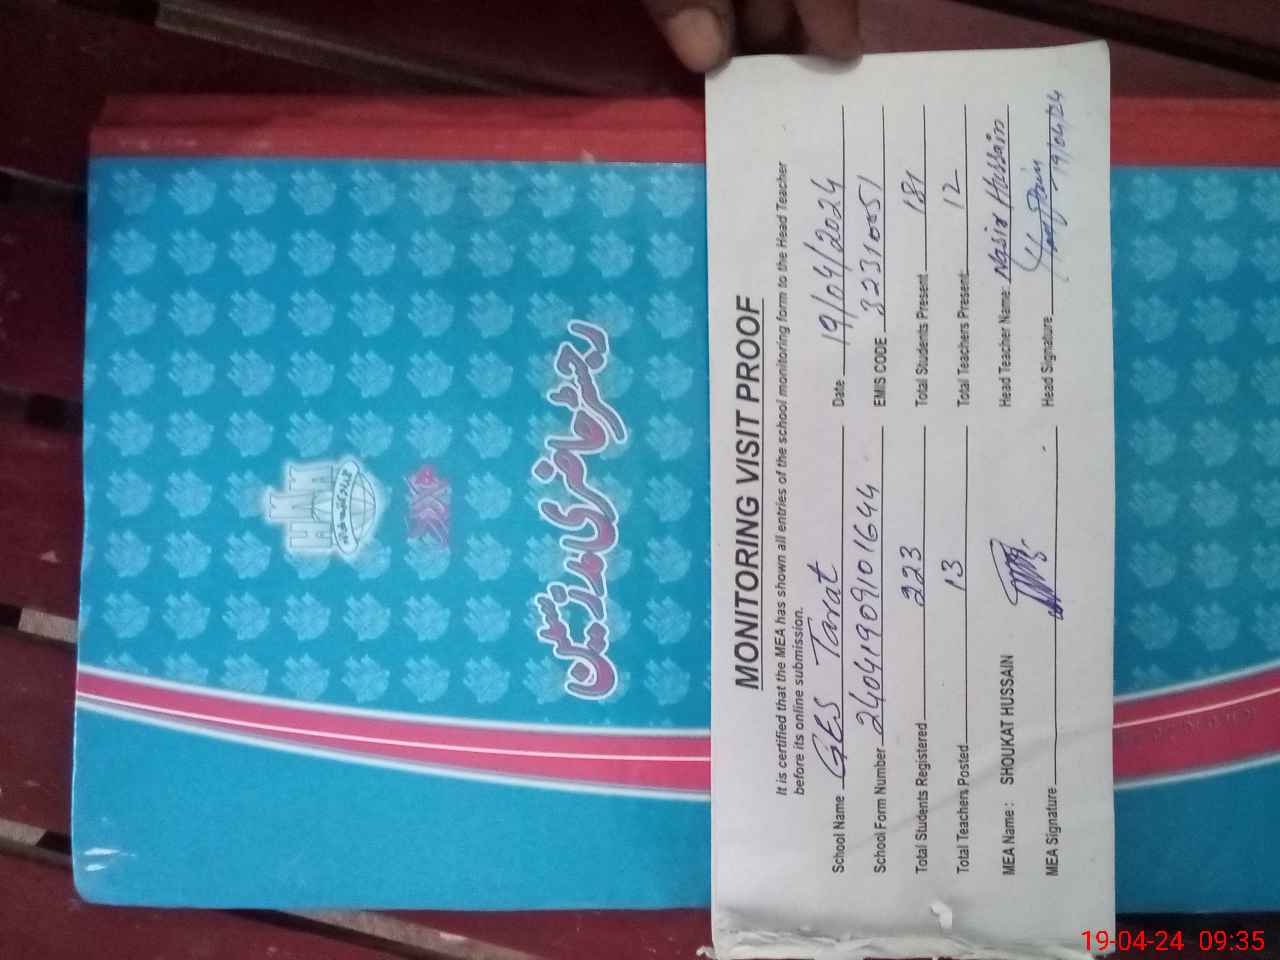 رجسٹر حاضری مدرسین
MONITORING VISIT PROOF
It is certified that the MEA has shown all entries of the school monitoring form to the Head Teacher
before its online submission.
School Name GES Tarat Date 19/04/2024
School Form Number 24041909101644 EMIS CODE 32310051
Total Students Registered 223 Total Students Present 181
Total Teachers Posted 13 Total Teachers Present 12
MEA Name : SHOUKAT HUSSAIN Head Teacher Name: Nasir Hussain
MEA Signature Head Signature 19/04/24
19-04-24 09:35